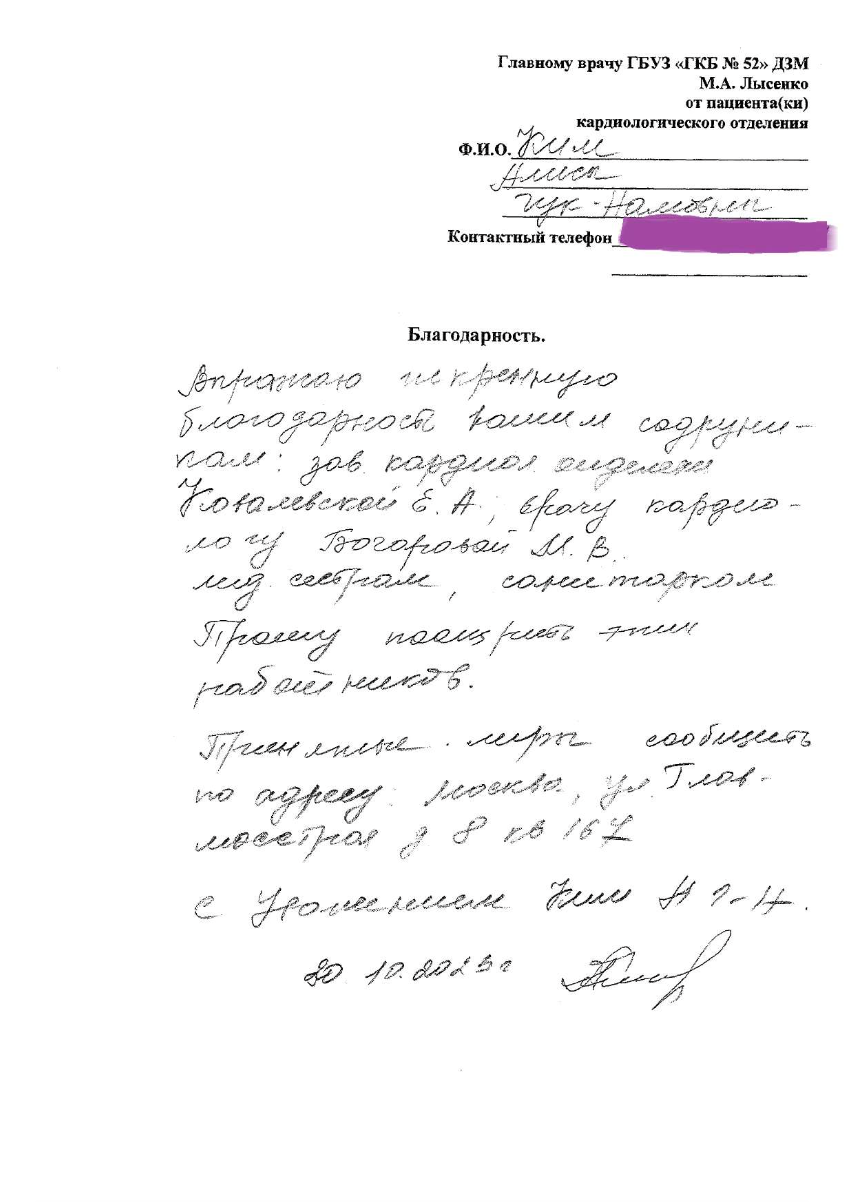 Главному врачу ГБУЗ «ГКБ № 52» ДЗМ
М.А. Лысенко
от пациента(ки)
кардиологического отделения
Ф.И.О. Ким
Алиса
Гук-Намовны
Контактный телефон
Благодарность.
Выражаю искреннюю
благодарность вашим содруни-
кам: зав. кардиол отделени
Ковалевской Е. А., врачу кардио-
логу Богоровой М. В.
мед. сестрам, санитаркам
Прошу поощрить этих
работников.
Принятые меры сообщить
по адресу: Москва, ул. Глав-
мосстроя д 8 кв 167
С уважением Ким А Г-Н.
20.10.2023 г